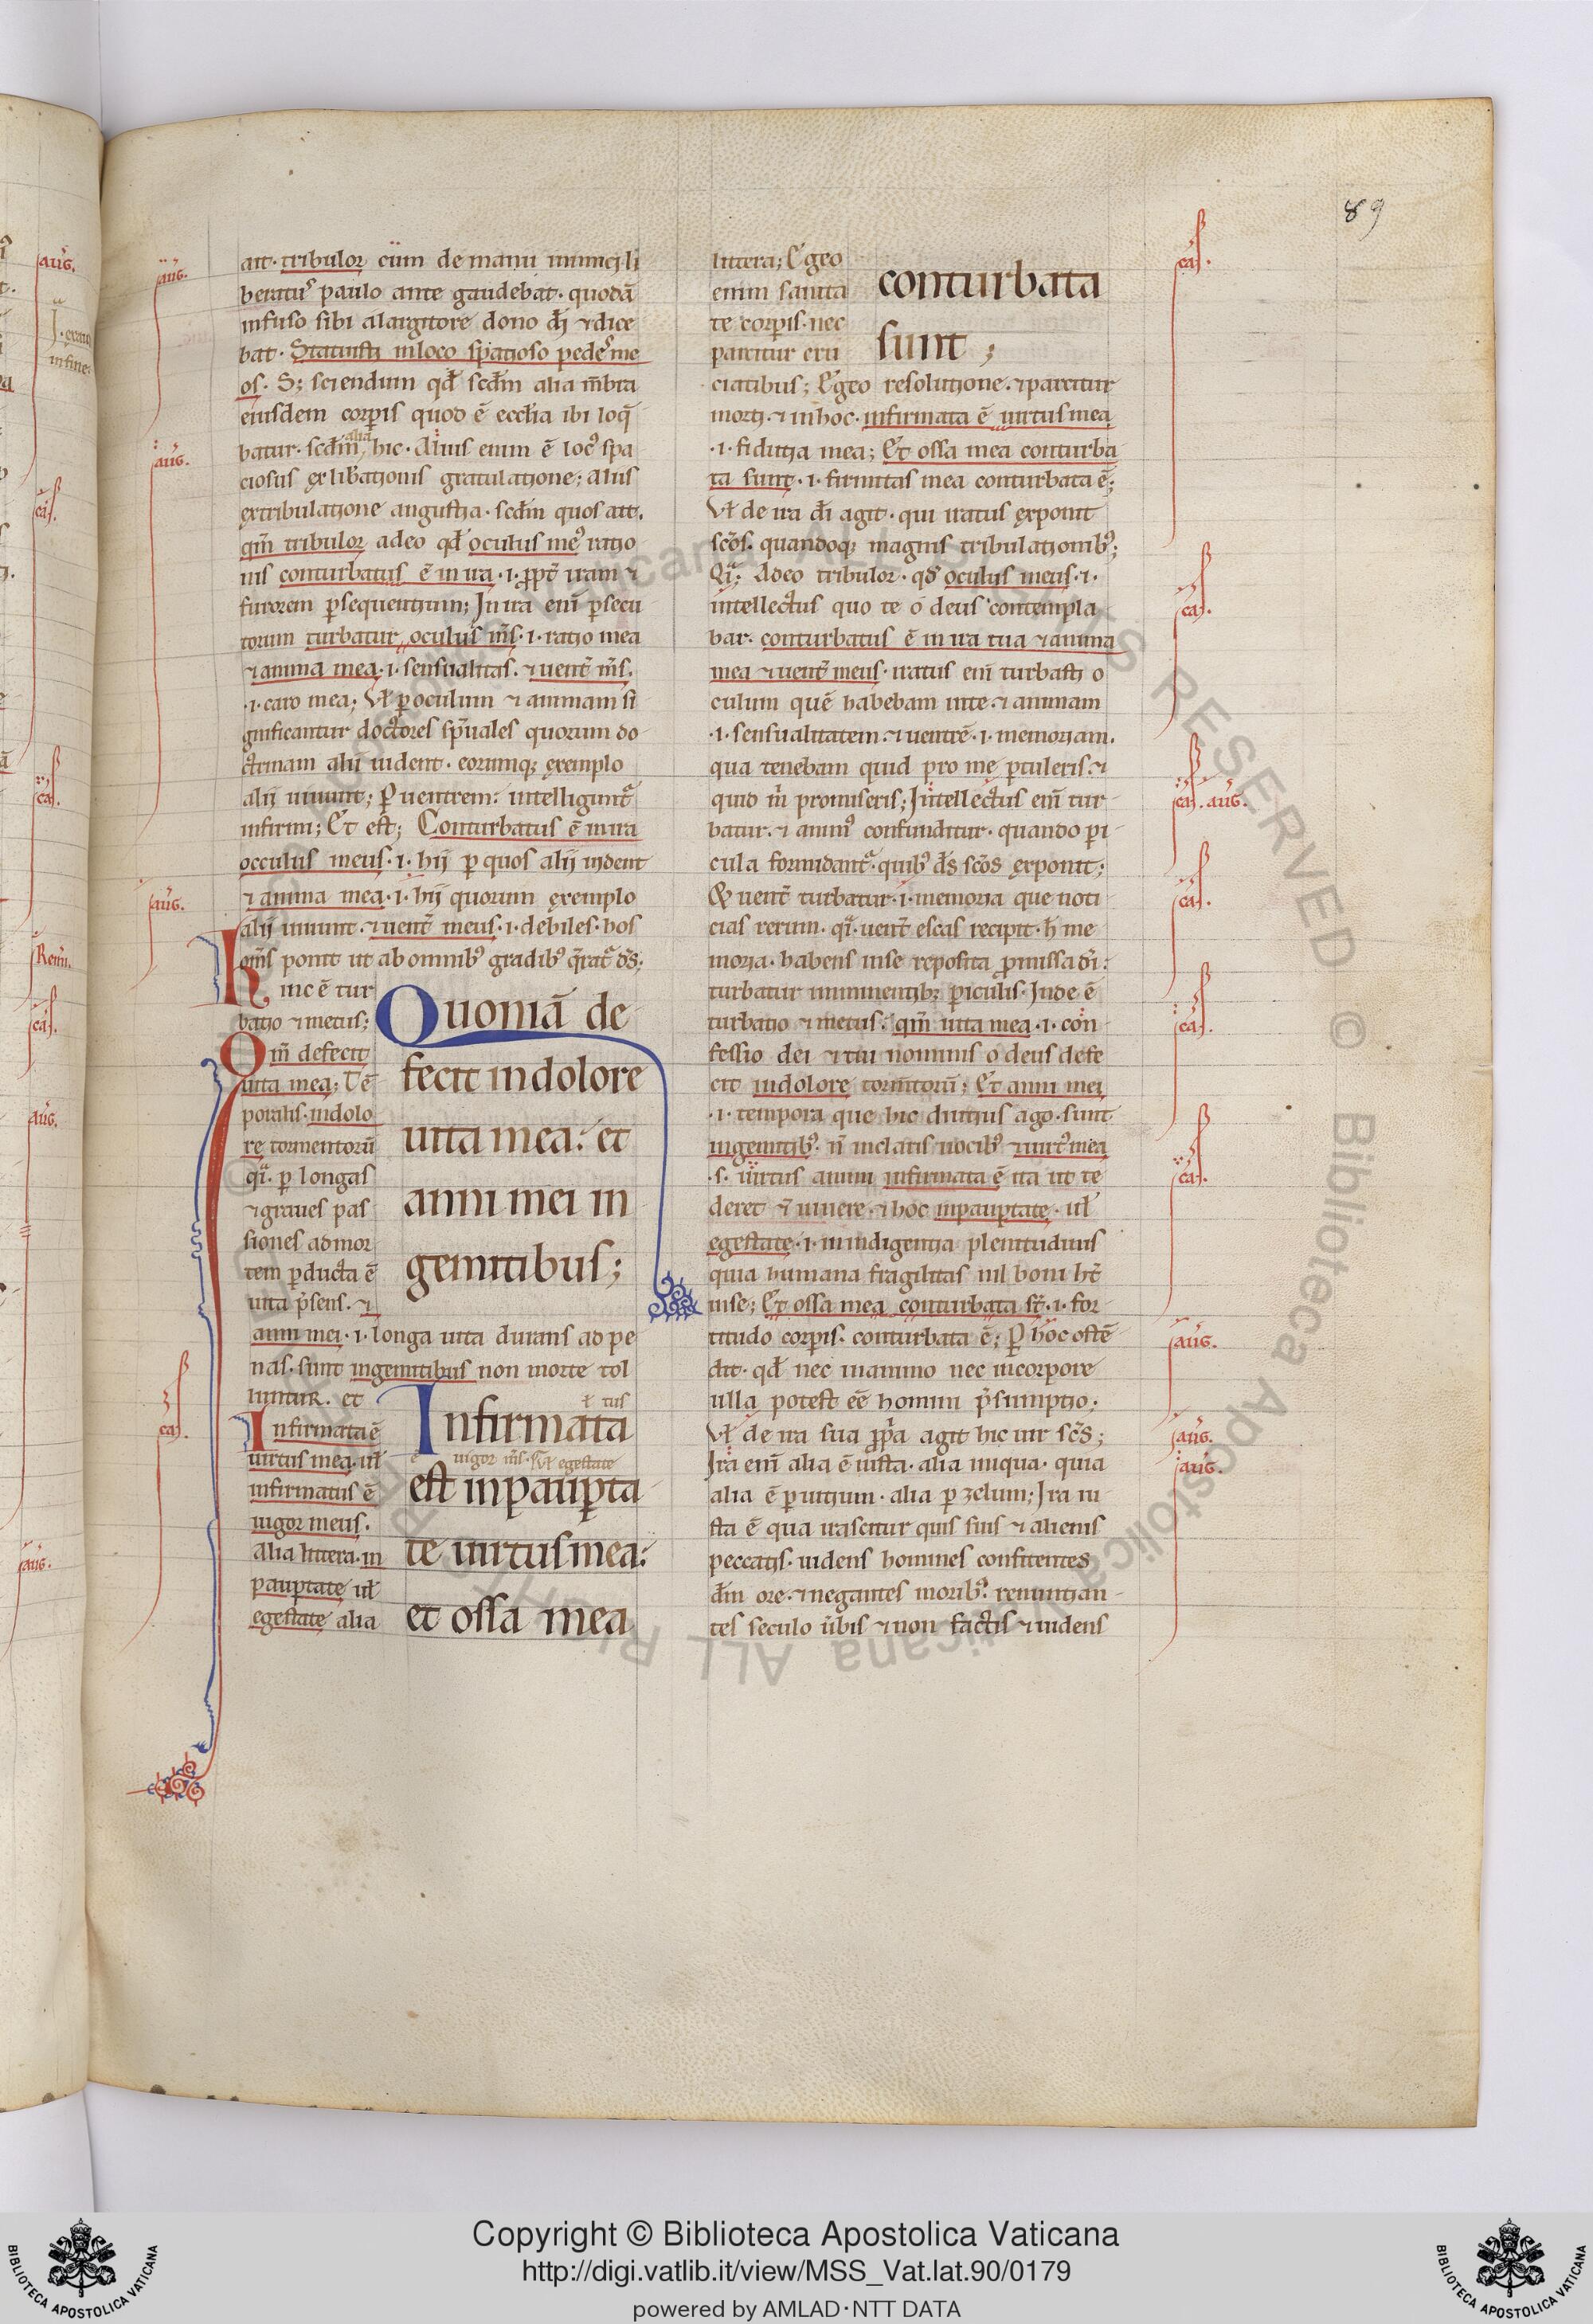 89
ait. tribulor cum de manu inimici li
beratus paulo ante gaudebat. quodā
infuso sibi a largitore dono dī ⁊ dice
bat. Statuisti in loco spatioso pedes me
os. S; sciendum qd scdm alia mbra
eiusdem corpis quod ē ecclia ibi loq̄
batur. scdm alia hic. Alius enim ē loc' spa
ciosus ex libationis gratulatione; alius
ex tribulatione angustia. scdm quos ait.
qm̄ tribulor adeo qd oculus me' ratio
nis conturbatus ē in ira .i. ppt iram ⁊
furorem psequentium; In ira enī psecu
torum turbatur oculus ms .i. ratio mea
⁊ anima mea .i. sensualitas. ⁊ uent ms.
.i. caro mea; Vl p oculum ⁊ animam si
gnificantur doctores spuales quorum do
ctrinam alii uident. eorumq; exemplo
alij uiuunt; P uentrem: intelligunt
infirmi; Et est; Conturbatus ē in ira
occulus meus .i. hij p quos alij uident
⁊ anima mea .i. hij quorum exemplo
alij uiuunt. ⁊ uent meus .i. debiles. hos
oms ponit ut ab omnib' gradib' qrat ds;
Hinc ē tur
batio ⁊ metus;
Qm̄ defecit
uita mea; Tē
poralis. in dolo
re tormentorū
qa. p longas
⁊ graues pas
siones ad mor
tem pducta ē
uita psens. ⁊
Quoniā de
fecit in dolore
uita mea: et
anni mei in
gemitibus;
anni mei .i. longa uita durans ad pe
nas. sunt in gemitibus non morte tol
luntur. et
Infirmata ē
uirtus mea. ul
infirmatus ē
uigor meus.
alia littera. in
paupertate ul
egestate alia
tus
Infirmata
uigor ms. ul egestate
est in paupta
te uirtus mea:
et ossa mea
littera; Egeo
enim sanita
te corpis. nec
parcitur cru
conturbata
sunt;
ciatibus; Egeo resolutione. ⁊ parcitur
morti. ⁊ in hoc. infirmata ē uirtus mea
.i. fidutia mea; Et ossa mea conturba
ta sunt .i. firmitas mea conturbata ē;
Vl de ira dī agit. qui iratus exponit
scos. quandoq; magnis tribulationib';
Qa; Adeo tribulor. qd oculus meus .i.
intellectus quo te o deus contempla
bar. conturbatus ē in ira tua ⁊ anima
mea ⁊ uent meus. iratus enī turbasti o
culum quē habebam in te. ⁊ animam
.i. sensualitatem. ⁊ uentrē .i. memoriam.
qua tenebam quid pro me ptuleris. ⁊
quid m promiseris; Intellectus enī tur
batur. ⁊ anim' confunditur. quando pi
cula formidant. quib' ds scos exponit;
Et uent turbatur .i. memoria que noti
cias rerum. qa uent escas recipit. h me
moria. habens in se reposita promissa dī:
turbatur imminentib; piculis. Inde ē
turbatio ⁊ metus: qm̄ uita mea .i. con
fessio dei ⁊ tui nominis o deus defe
cit in dolore tormtorū; Et anni mei
.i. tempora que hic diutius ago. sunt
in gemitib'. n in elatis uocib' ⁊ uirt' mea
.s. uirtus animi infirmata ē ita ut te
deret ⁊ uiuere. ⁊ hoc in paupertate. ul
egestate .i. in indigentia plenitudinis
quia humana fragilitas nil boni ht
in se; Et ossa mea conturbata st .i. for
titudo corpis. conturbata ē; P hoc ostē
dit. qd nec in animo nec in corpore
ulla potest eē homini psumptio;
Vl de ira sua ppa agit hic uir scs;
Ira enī alia ē iusta. alia iniqua. quia
alia ē p uitium. alia p zelum; Ira iu
sta ē qua irascitur quis suis ⁊ alienis
peccatis. uidens homines confitentes
dm ore. ⁊ negantes morib'. renuntian
tes seculo ubis ⁊ non factis ⁊ uidens
aug.
aug.
aug.
cas.
cas.
cas.
cas. aug.
cas.
cas.
cas.
aug.
aug.
aug.
Copyright © Biblioteca Apostolica Vaticana
http://digi.vatlib.it/view/MSS_Vat.lat.90/0179
powered by AMLAD·NTT DATA
BIBLIOTECA APOSTOLICA VATICANA
BIBLIOTECA APOSTOLICA VATICANA